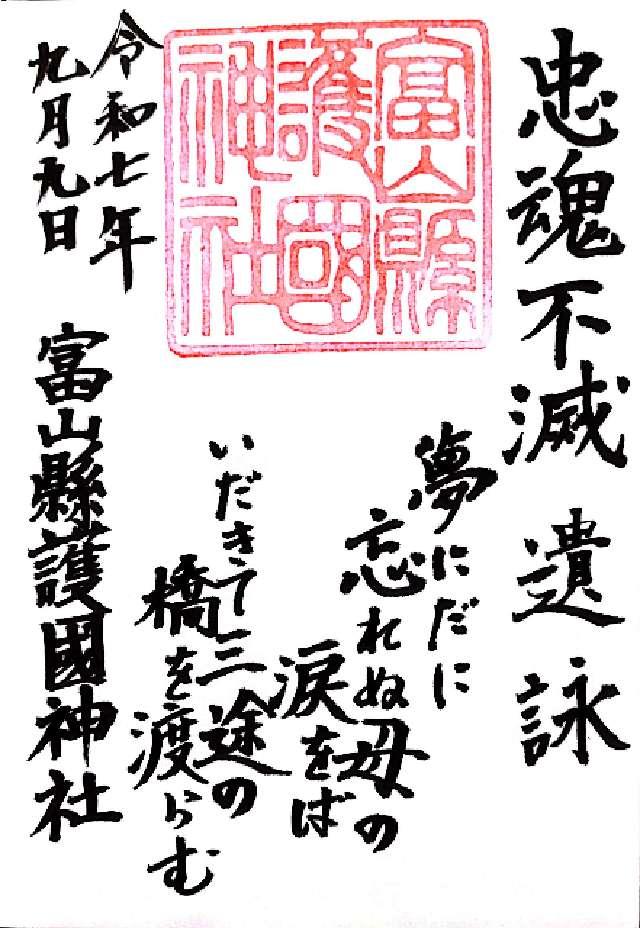 忠魂不滅 遺詠
夢にだに
忘れぬ母の
涙をば
いだきて三途の
橋を渡らむ
富山縣
護國
神社
令和七年
九月九日
富山縣護國神社